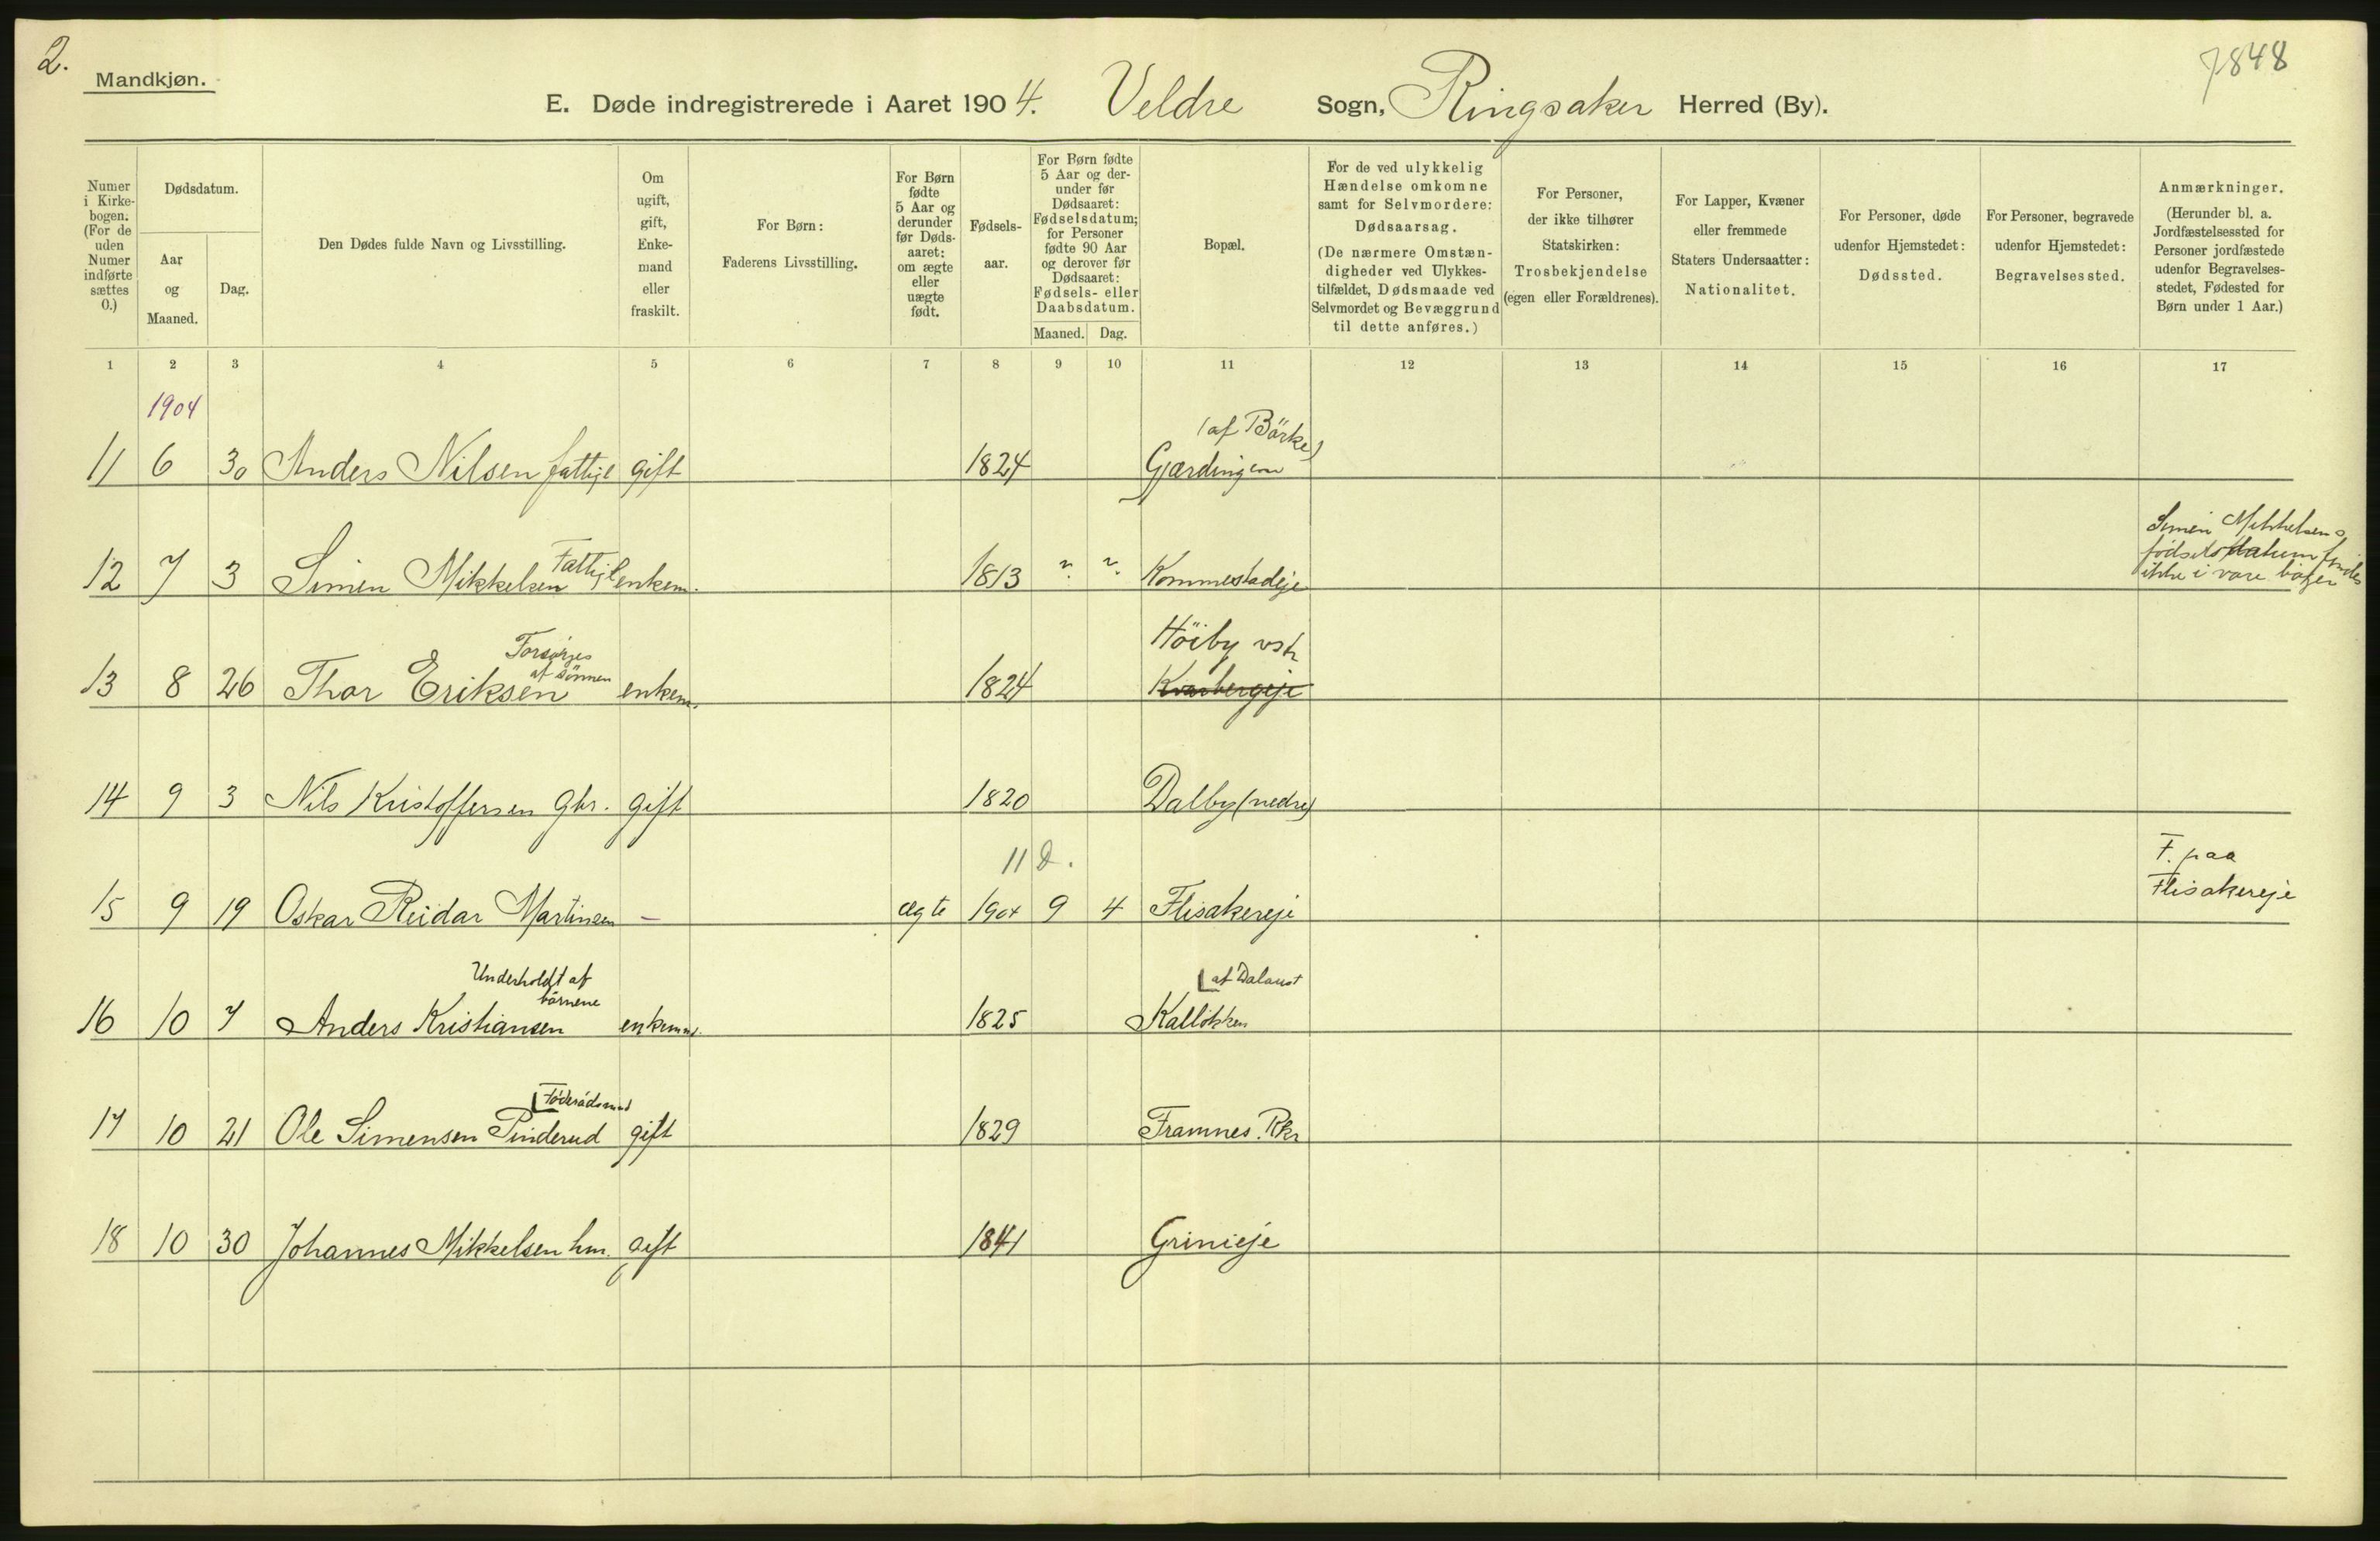 2.
Mandkjøn.
7848
E. Døde indregistrerede i Aaret 1904. Veldre Sogn, Ringsaker Herred (By).
Numer i Kirke-bogen. (For de uden Numer indførte sættes 0.)
Dødsdatum.
Aar og Maaned.
Dag.
Den Dødes fulde Navn og Livsstilling.
Om ugift, gift, Enke-mand eller fraskilt.
For Børn: Faderens Livsstilling.
For Børn fødte 5 Aar og derunder før Døds-aaret: om ægte eller uægte født.
Fødsels-aar.
For Børn fødte 5 Aar og der-under før Dødsaaret: Fødselsdatum; for Personer fødte 90 Aar og derover før Dødsaaret: Fødsels- eller Daabsdatum.
Maaned. Dag.
Bopæl.
For de ved ulykkelig Hændelse omkomne samt for Selvmordere: Dødsaarsag. (De nærmere Omstæn-digheder ved Ulykkes-tilfældet, Dødsmaade ved Selvmordet og Bevæggrund til dette anføres.)
For Personer, der ikke tilhører Statskirken: Trosbekjendelse (egen eller Forældrenes).
For Lapper, Kvæner eller fremmede Staters Undersaatter: Nationalitet.
For Personer, døde udenfor Hjemstedet: Dødssted.
For Personer, begravede udenfor Hjemstedet: Begravelsessted.
Anmærkninger. (Herunder bl. a. Jordfæstelsessted for Personer jordfæstede udenfor Begravelses-stedet, Fødested for Børn under 1 Aar.)
1 2 3 4 5 6 7 8 9 10 11 12 13 14 15 16 17
1904
(af Börke)
11 6 30 Anders Nilsen fattigl gift 1824 Gjærdingen
Simen Mikkelsens
fødselsdatum findes
ikke i vore bøger
12 7 3 Simen Mikkelsen Fattigl enkem. 1813 ? ? Kommestadeje
Forsørges
af sönnen
Höiby vstr
13 8 26 Thor Eriksen enkem. 1824 Kvarbergeje
14 9 3 Nils Kristoffersen gbr. gift 1820 Dalby (nedre)
11 D.
F. paa
Flisakereje
15 9 19 Oskar Reidar Martinsen - ægte 1904 9 4 Flisakereje
Underholdt af
börnene
af Dalaust
16 10 7 Anders Kristiansen enkemnd. 1825 Kallökken
Föderådsmd
17 10 21 Ole Simensen Pinderud gift 1829 Framnes. Rkr
18 10 30 Johannes Mikkelsen hm. gift 1841 Grinieje